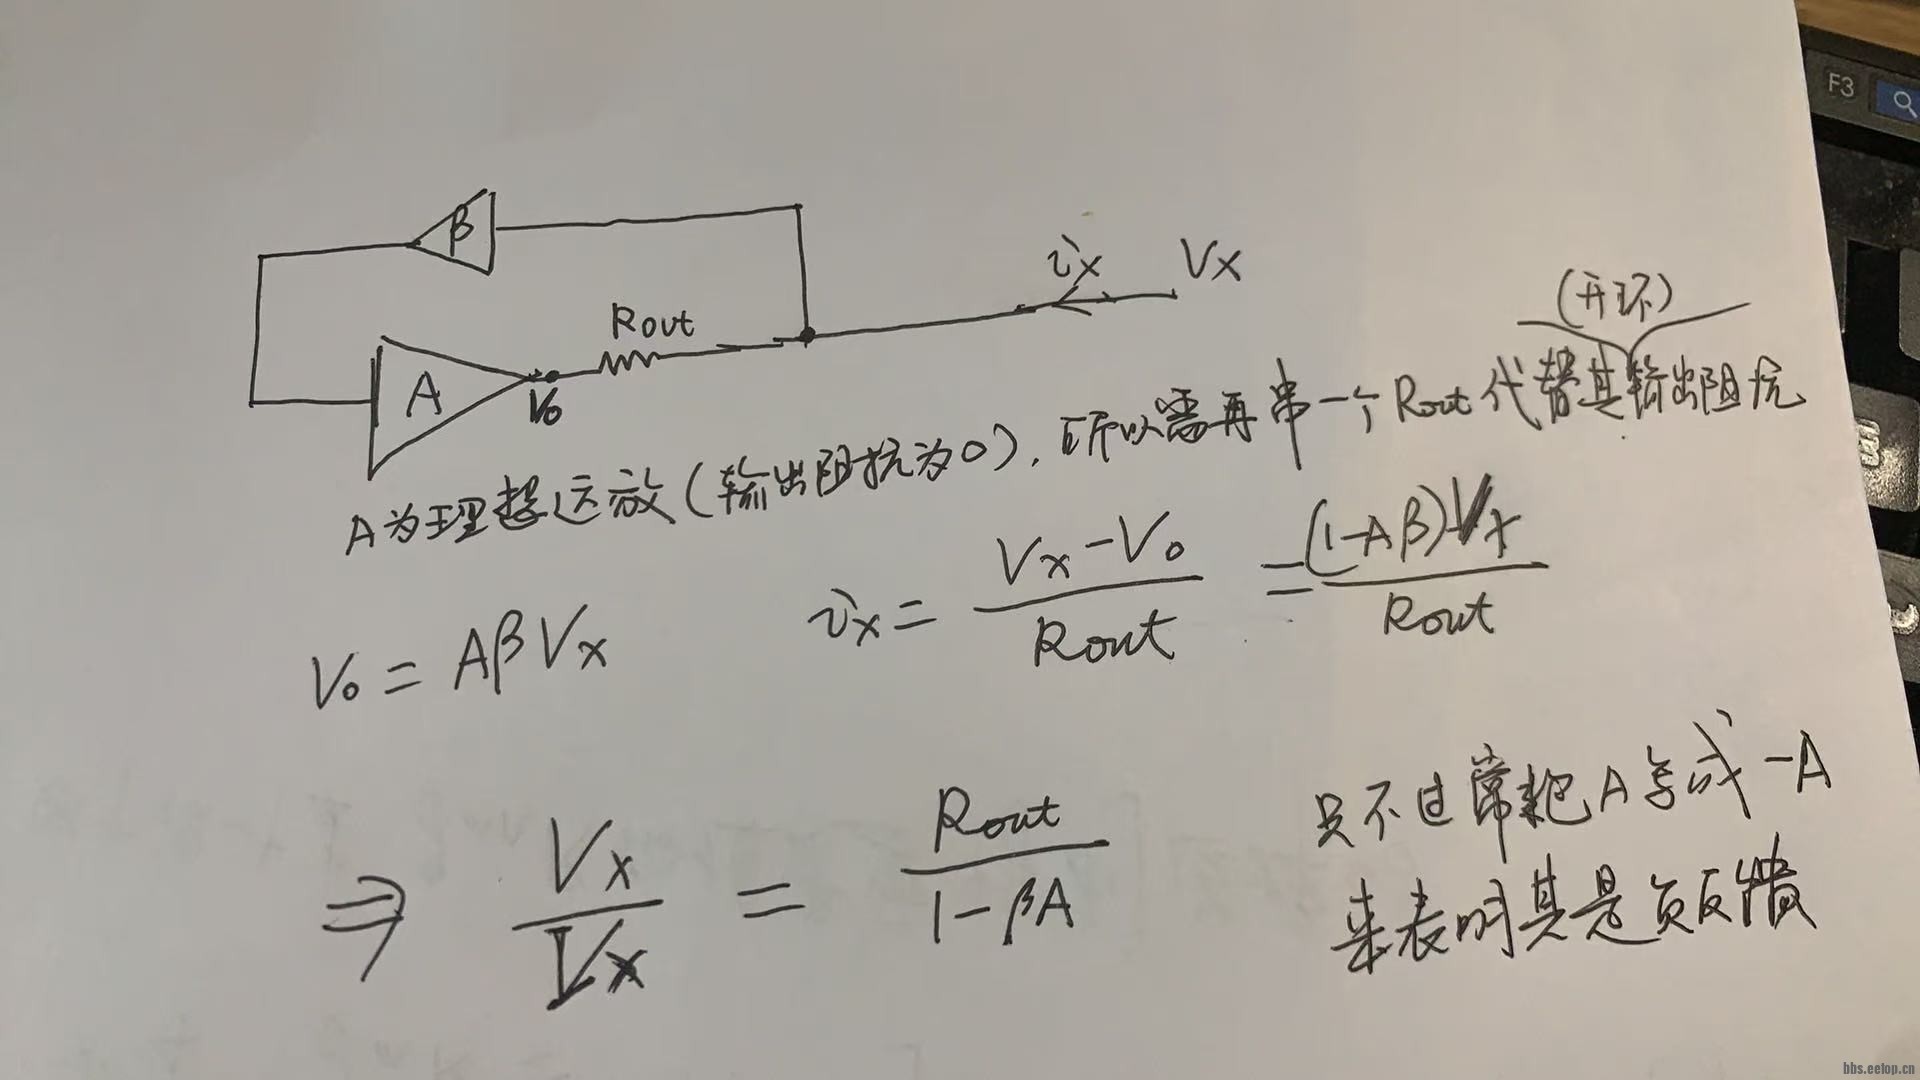 F3
β
ix
Vx
(开环)
Rout
A
Vo
A为理想运放(输出阻抗为0),所以需再串一个Rout代替其输出阻抗
Vo = AβVx
ix = Vx-Vo / Rout = (1-Aβ)Vx / Rout
⇒ Vx / Ix = Rout / 1-βA
只不过常把A写成-A
来表明其是负反馈
bbs.eetop.cn